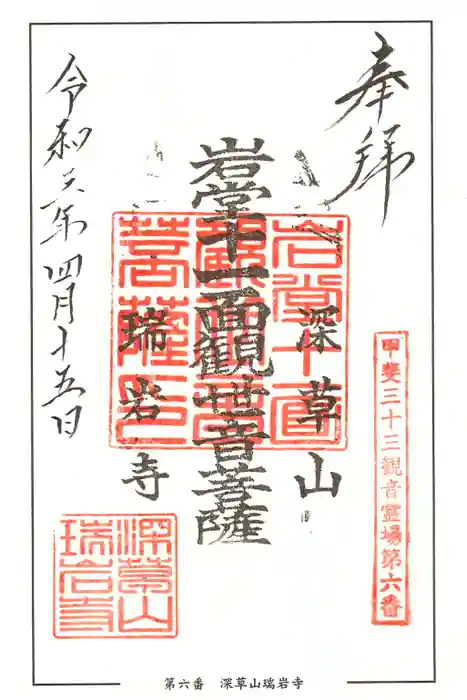 奉拝
甲斐三十三観音霊場第六番
深草山
岩堂十一面観世音菩薩
瑞岩寺
岩堂十一面
菩薩印
深草山
瑞岩寺
令和年四月十五日
第六番　深草山瑞岩寺